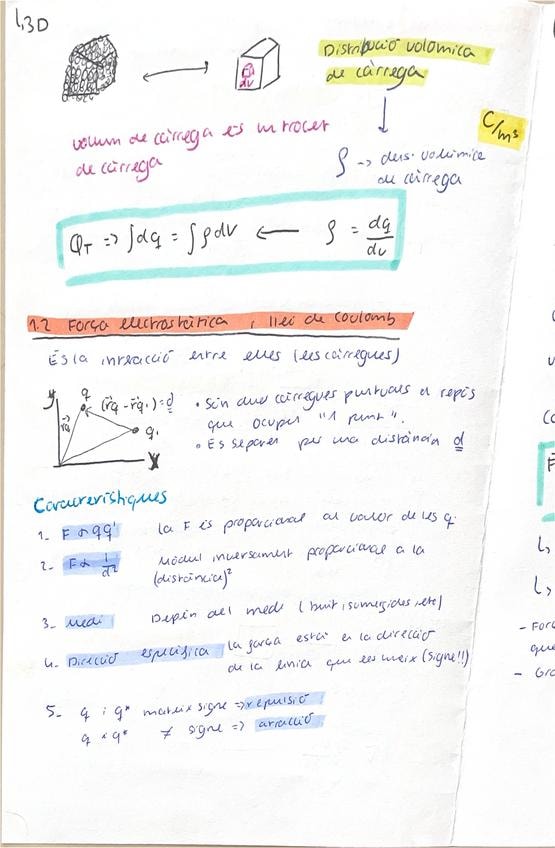 ↳3D
Distribució volúmica
de càrrega
dq
dv
C/m³
volum de càrrega és un trocet
de càrrega
ρ → dens. volúmica
de càrrega
Q_T => ∫dq = ∫ρdv ← ρ = dq/dv
1.2 Força electrostàtica, llei de Coulomb
És la interacció entre elles (les càrregues)
y q (r⃗q - r⃗q') = d
r⃗q q'
x
• Són dues càrregues puntuals en repòs
que ocupen "1 punt".
• Es separen per una distància d
Característiques
1. F α qq' la F és proporcional al valor de les q.
2. F α 1/d² Mòdul inversament proporcional a la
(distància)²
3. Medi Depèn del medi (buit, sumergides, etc)
4. Direcció específica la força està en la direcció
de la línia que les uneix (signe!!)
5. q i q* mateix signe => repulsió
q i q* ≠ signe => atracció
F
↳
↳
- Forç
que
- Gra